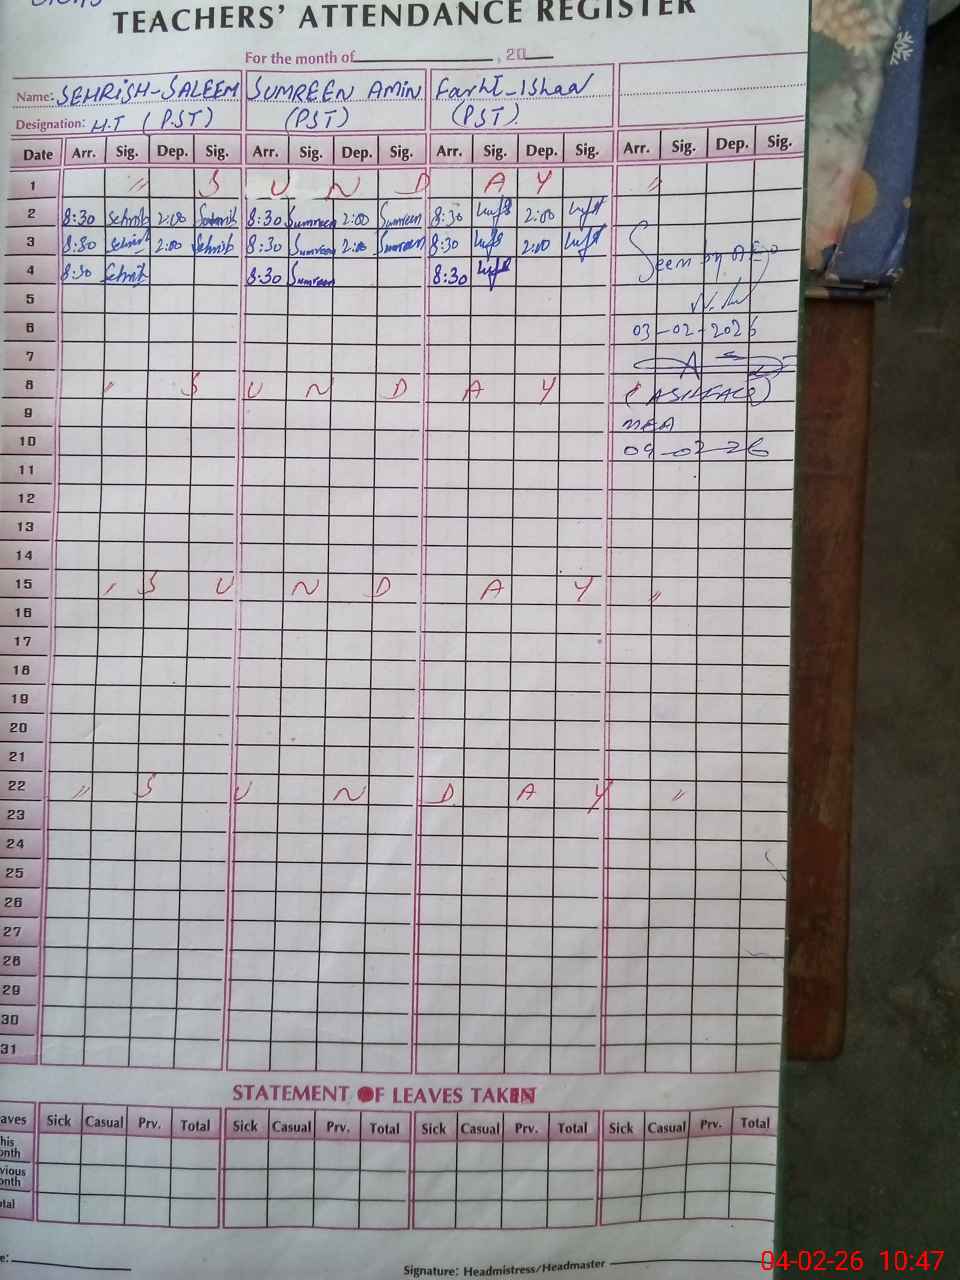 TEACHERS' ATTENDANCE REGISTER
For the month of , 20
Name: SEHRISH-SALEEM SUMREEN AMIN
Designation: H.T (PST) (PST) (PST)
Date Arr. Sig. Dep. Sig. Arr. Sig. Dep. Sig. Arr. Sig. Dep. Sig. Arr. Sig. Dep. Sig.
1 " S U N D A Y "
2 8:30 Sehrish 2:00 Sehrish 8:30 Sumreen 2:00 Sumreen 8:30 2:00
3 8:30 Sehrish 2:00 Sehrish 8:30 Sumreen 2:00 Sumreen 8:30 2:00 Seen by AEO
4 8:30 Sehrish 8:30 Sumreen 8:30
5
6 03-02-2026
7
8 S U N D A Y
9 MEA
10
11
12
13
14
15 S U N D A Y "
16
17
18
19
20
21
22 " S U N D A Y "
23
24
25
26
27
28
29
30
31
STATEMENT OF LEAVES TAKEN
aves Sick Casual Prv. Total Sick Casual Prv. Total Sick Casual Prv. Total Sick Casual Prv. Total
his
onth
vious
onth
otal
e: Signature: Headmistress/Headmaster
04-02-26 10:47